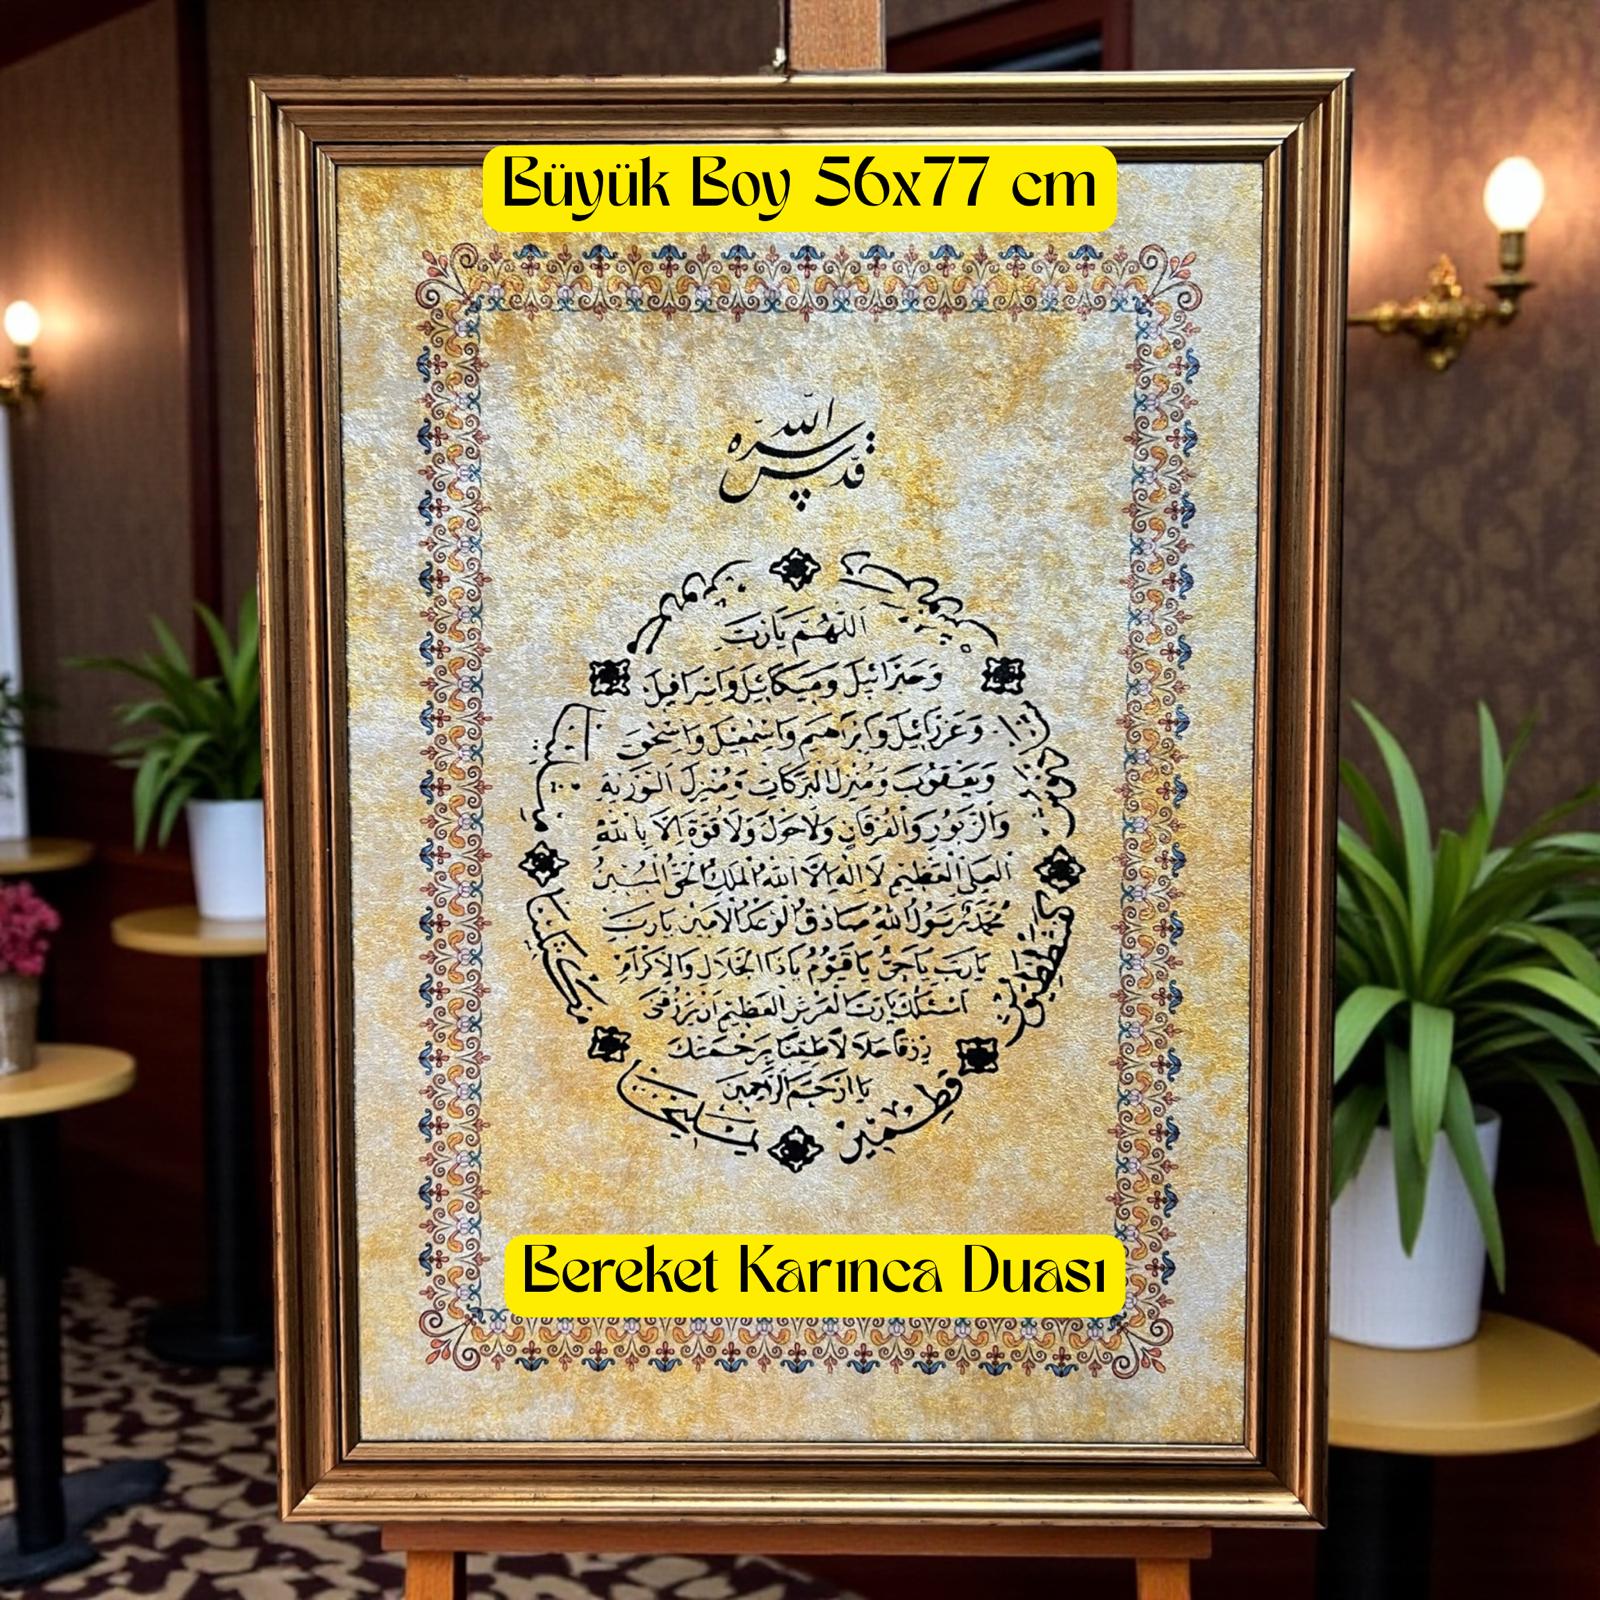 Büyük Boy 56x77 cm
الله
قدس سره
اللهم يا رب
وجبرائيل وميكائيل واسرافيل
وعزرائيل وابراهيم واسمعيل واسحق
ويعقوب ومنزل البركات ومنزل التورية
والزبور والفرقان ولا حول ولا قوة الا بالله
العلى العظيم لا اله الا الله الملك الحق المبين
محمد رسول الله صادق الوعد الامين يا رب
يا رب يا حى يا قيوم يا ذا الجلال والاكرام
اسئلك يا رب العرش العظيم ان يرزقنى
رزقا حلالا طيبا برحمتك
يا ارحم الراحمين
مكثلينا
يمليخا
قطمير
Bereket Karınca Duası